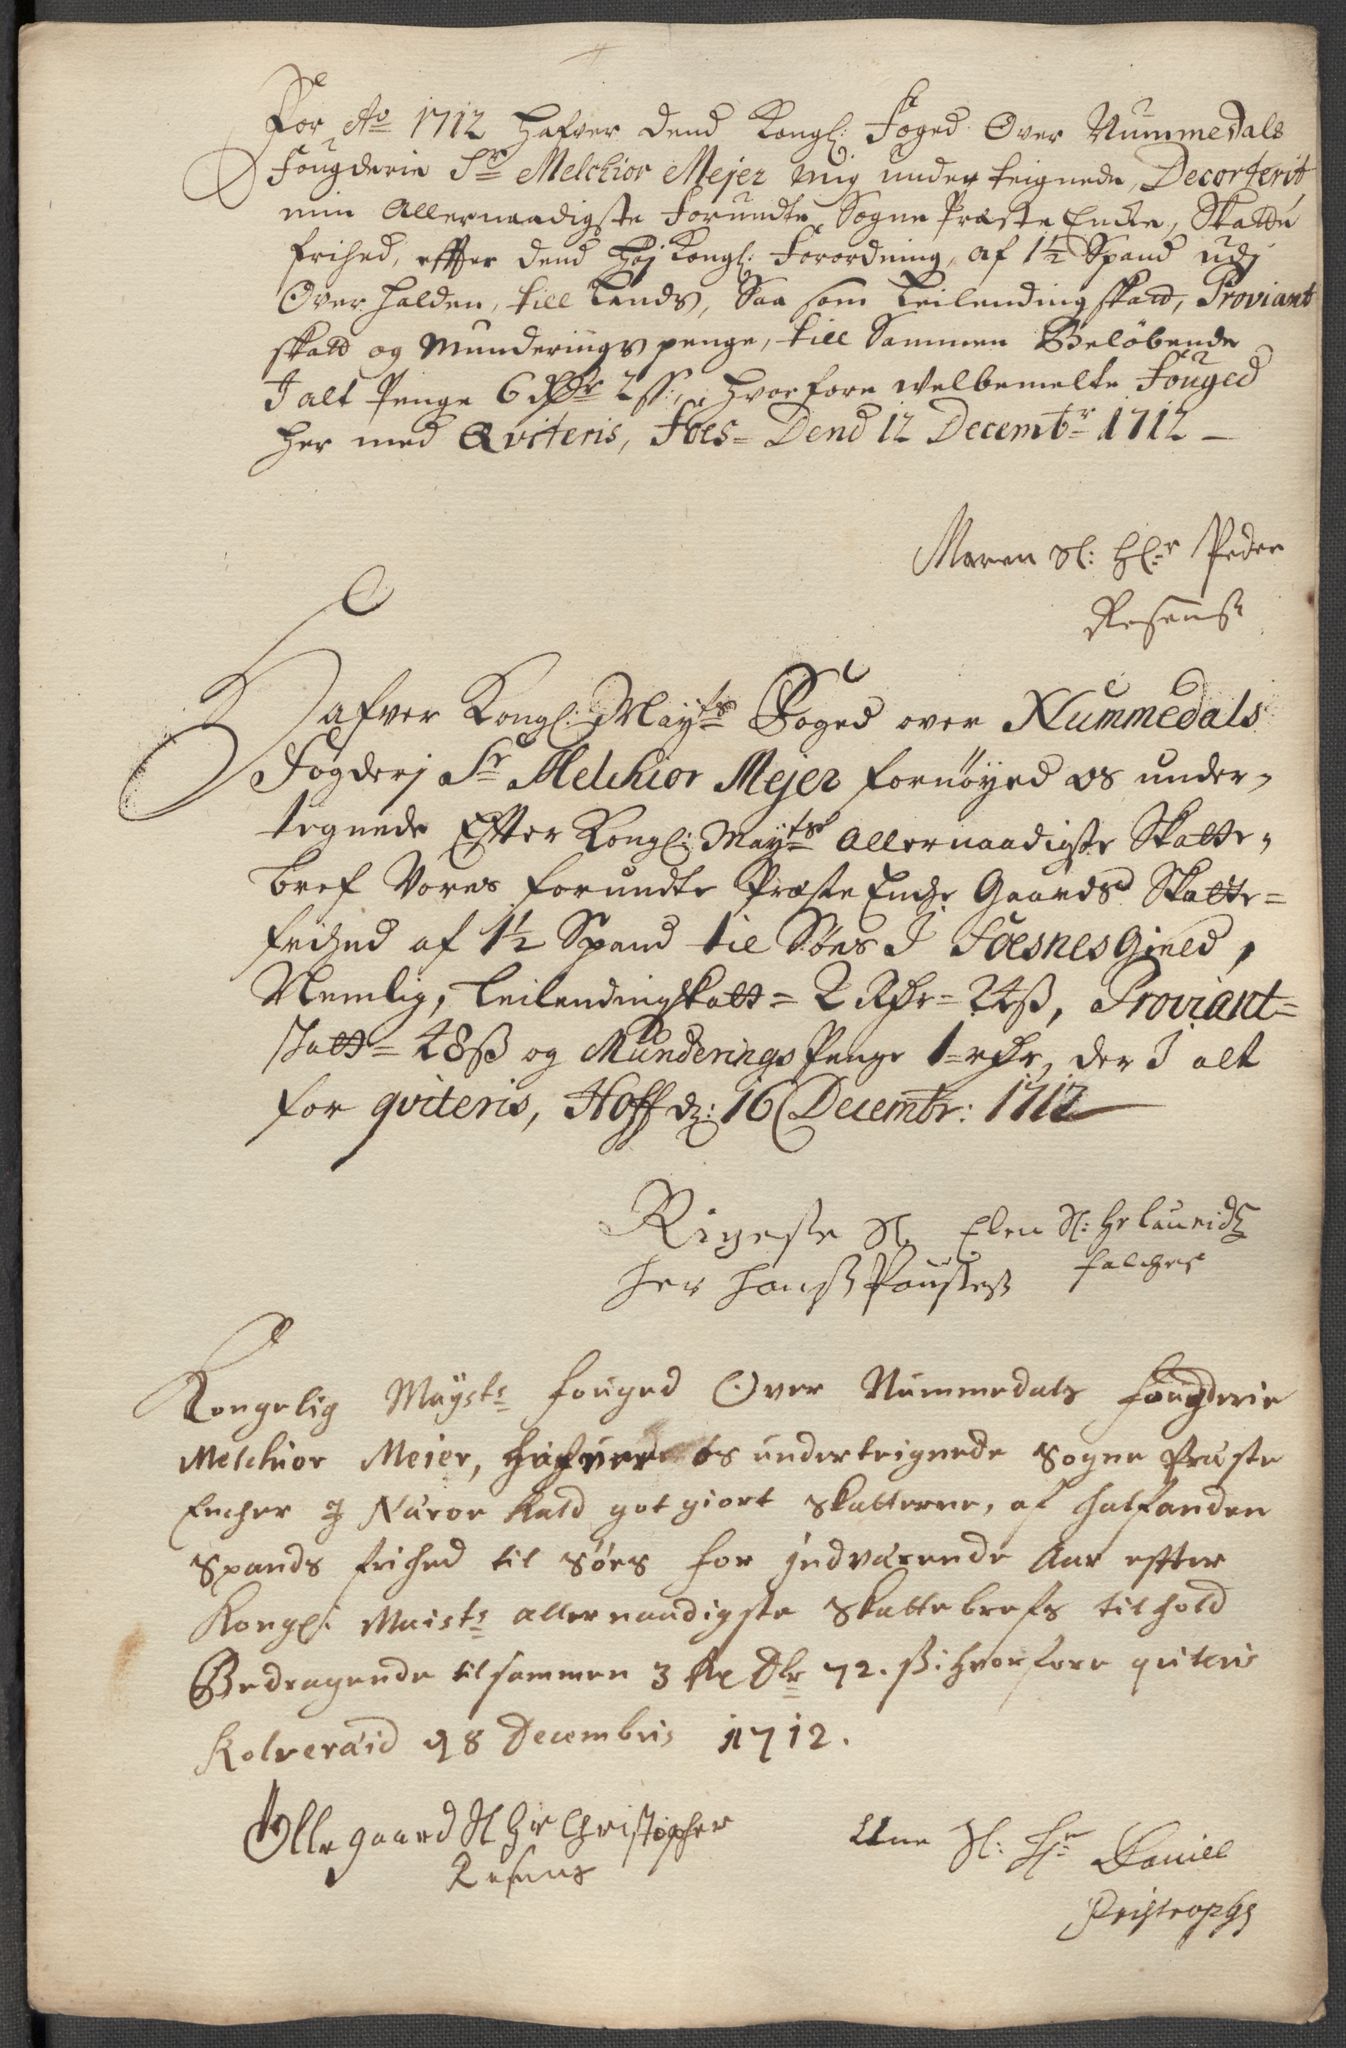 For Ao 1712 hafver dend Kongl: Foged Over Nummedals
Fougderie Sr Melchior Mejer mig under teignede, Decorterit
min Allernaadigste Forundte Sogne Præste Encke, Skatte
frihed, effter dend høj Kongl: Forordning, af 1½ Spand udj
Over halden, till Lands, Saa som Leilending skatt, Proviant
skatt og Munderings penge, till Sammen Beløbende
J alt Penge 6 Rdr 2 ss:, hvorfore welbemelte Fouged
her med Qviteris, Foes= Dend 12 Decembr 1712 -
Maren Sl: Hr Peder
Resens
Hafver Kongl: Mayts Foged over Nummedals
Fogderj Sr Melchior Mejer fornøyed os under-
tegnede Efter Kongl: Mayts Allernaadigste Skatte-
bref Vores forundte Præste Encke Gaards Skatte=
frihed af 1½ Spand til Søes J Foesnes Gield,
Nemlig, Leilendingskatt= 2 Rdr= 24 ß, Proviant=
skatt= 48 ß og Munderings Penge 1=rdr, der J alt
for qviteris, Hoff d: 16 Decembr: 1712
Rigeste Sl. Elen Sl: Hr Lauridz
her Hanß Pousteß Falches
Kongelig Maysts fouged Over Nummedals fougderie
Melchior Meier, hafver os underteignede Sogne Præste
Encher i Nærøe Kald got giort Skatterne, af halfanden
Spands frihed til Søes for indværende Aar efter
Kongl: Maists allernaadigste Skattebrefs tilhold
Bedragende tilsammen 3 Rx Dlr 72. ß: hvorfore qviteris
Kolveræid d 8 Decembris 1712.
Ollegaard Sl Hr Christopher
Resens
Une Sl: Hr Daniell